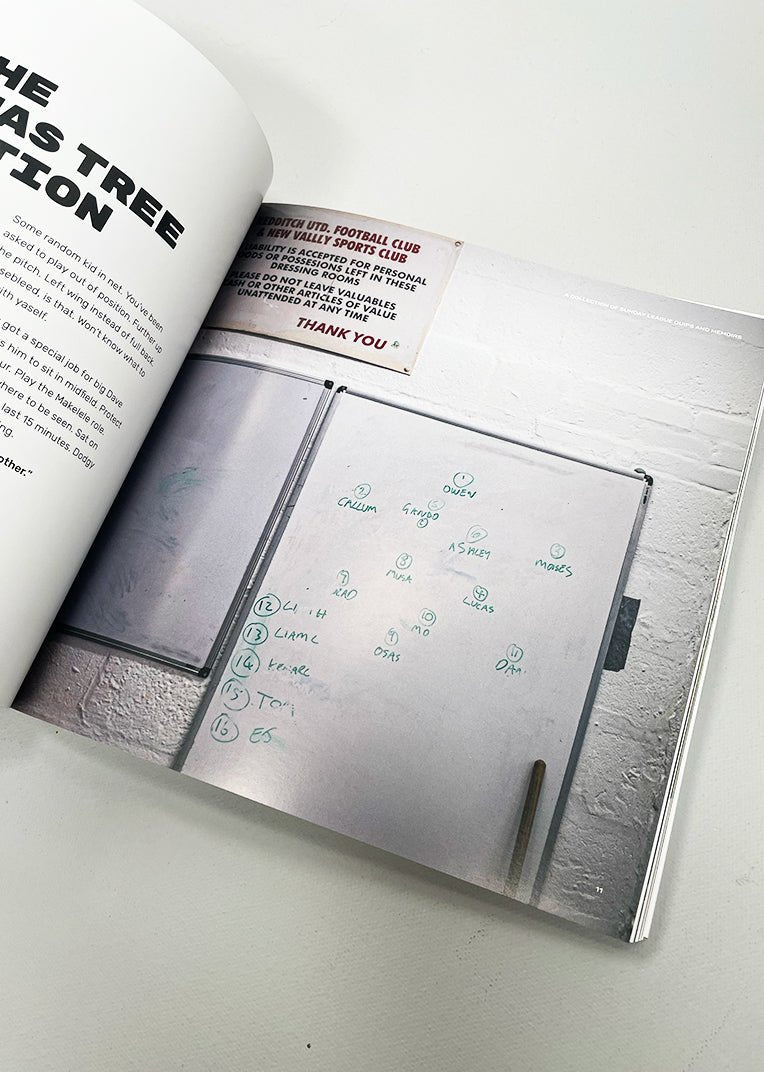 HE
AS TREE
TION
Some random kid in net. You've been
asked to play out of position. Further up
he pitch. Left wing instead of full back.
sebleed, is that. Won't know what to
ith yaself.
got a special job for big Dave
s him to sit in midfield. Protect
ur. Play the Makelele role.
here to be seen. Sat on
last 15 minutes. Dodgy
ng.
other."
REDDITCH UTD. FOOTBALL CLUB
& NEW VALLLY SPORTS CLUB
IABILITY IS ACCEPTED FOR PERSONAL
OODS OR POSSESIONS LEFT IN THESE
DRESSING ROOMS
PLEASE DO NOT LEAVE VALUABLES
CASH OR OTHER ARTICLES OF VALUE
UNATTENDED AT ANY TIME
THANK YOU
A COLLECTION OF SUNDAY LEAGUE QUIPS AND MEMOIRS
1
OWEN
2
CALLUM
GANDO
ASHLEY
3
MOISES
8
MUSA
7
4
LUCAS
10
MO
9
OSAS
11
12
13 LIAM C
14
15 TOM
16
11